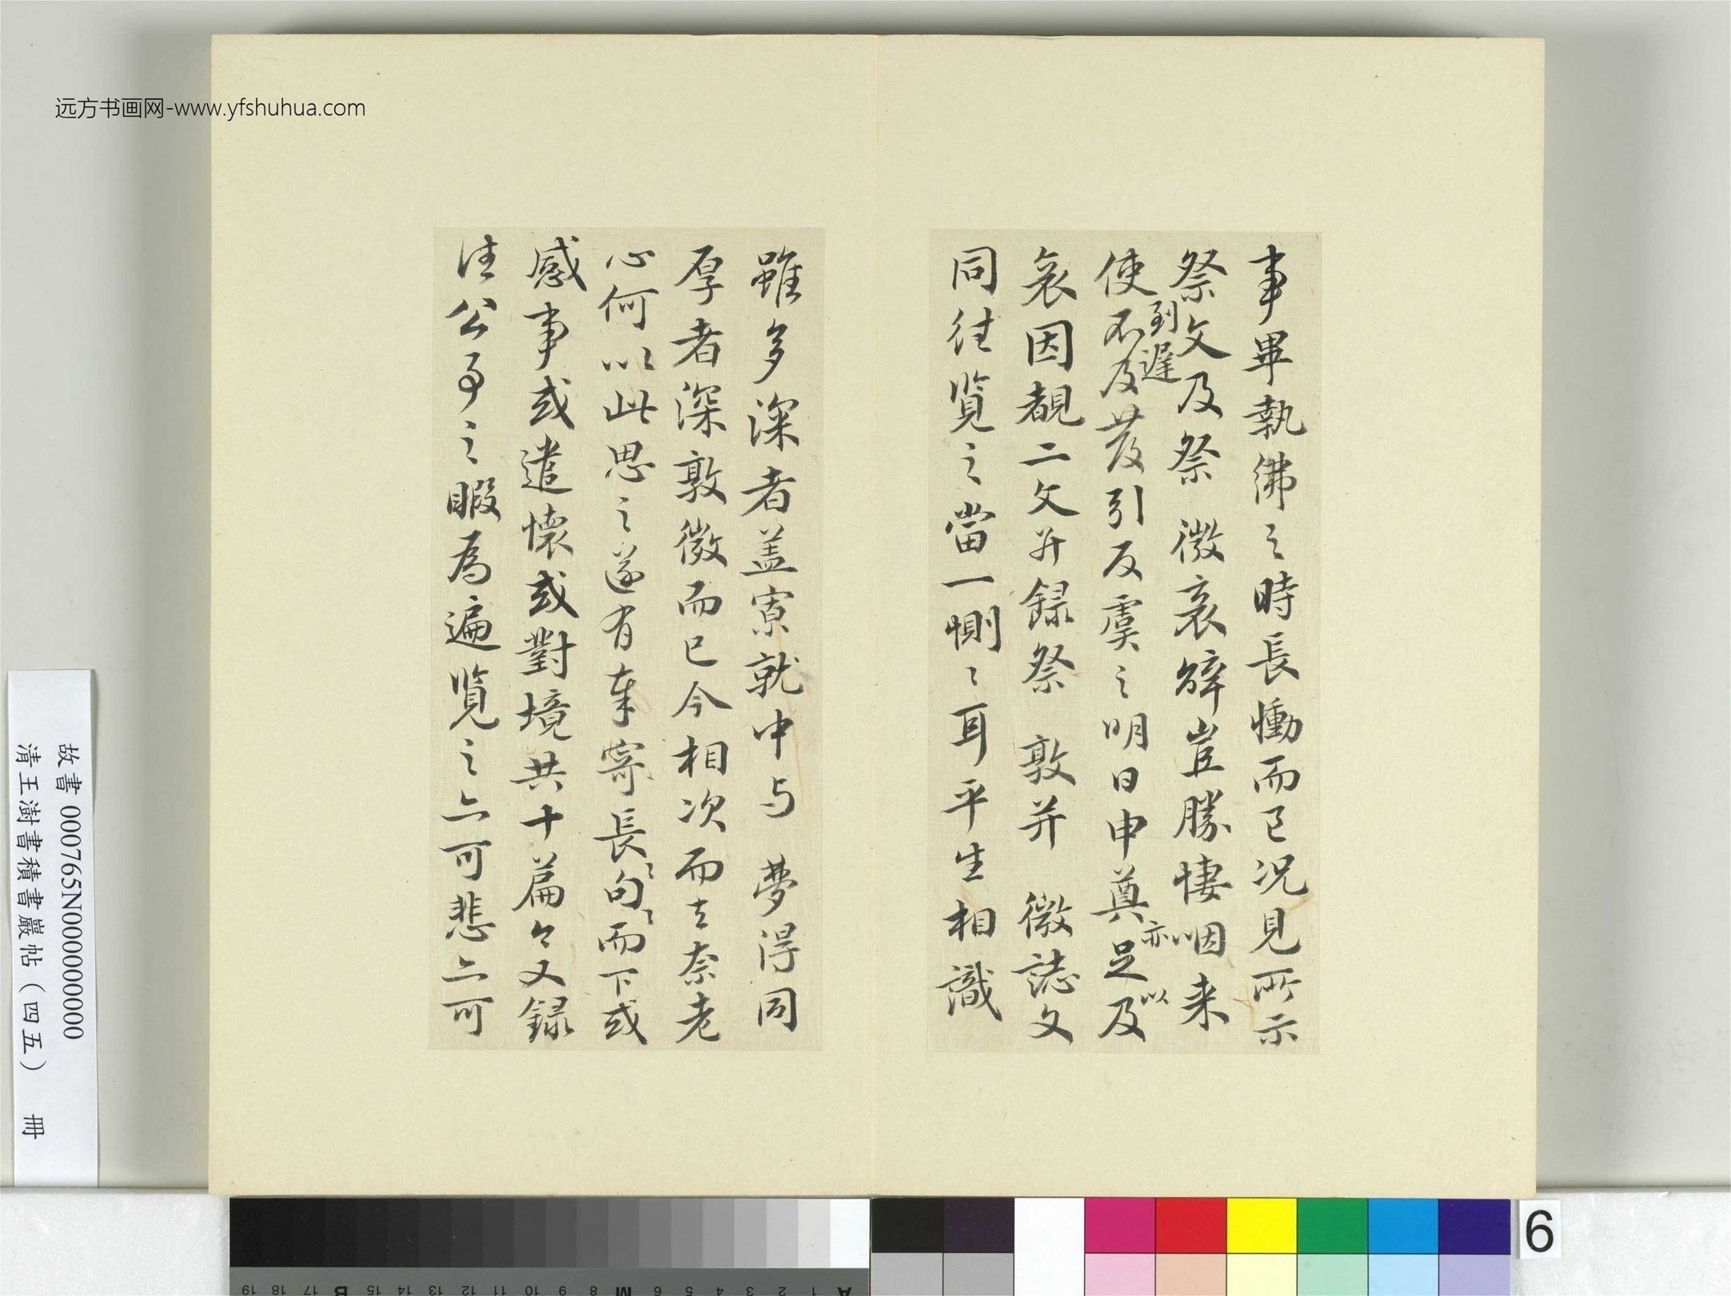 远方书画网-www.yfshuhua.com
事畢執紼之時長慟而已况見所示
祭文及祭 微哀辭豈勝悽咽来
使到遅不及發引反虞之明日申奠亦足以及
哀因覩二文并録祭 敦并 微誌文
同往覧之當一惻〻耳平生相識
雖多深者盖寡就中与 夢得同
厚者深敦微而已今相次而去奈老
心何以此思之遂有奉寄長句〻〻而下或
感事或遣懷或對境共十篇今又録
往公事之暇為遍覧之亦可悲亦可
故書 000765N000000000
清王澍書積書巖帖（四五） 冊
6
A 1 2 3 4 5 6 M 8 9 10 11 12 13 14 15 B 17 18 19